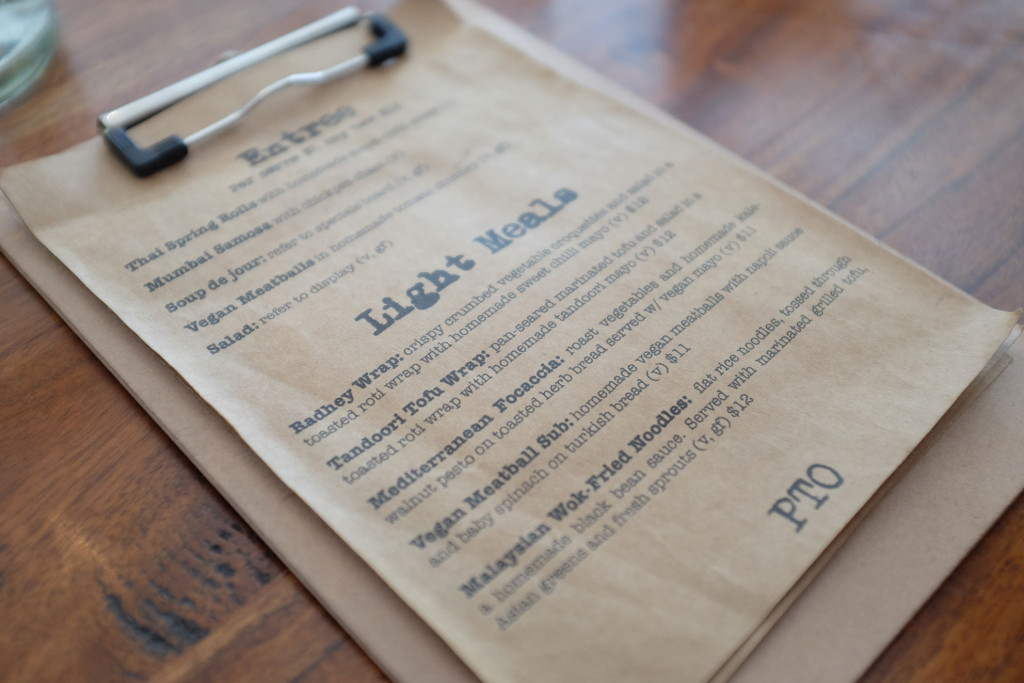 Entree
Thai Spring Rolls with homemade
Mumbai Samosa with chickpea
Soup de jour: refer to specials board (v, gf)
Vegan Meatballs in homemade tomato
Salad: refer to display (v, gf)
Light Meals
Radhey Wrap: crispy crumbed vegetable croquettes and salad in a
toasted roti wrap with homemade sweet chilli mayo (v) $12
Tandoori Tofu Wrap: pan-seared marinated tofu and salad in a
toasted roti wrap with homemade tandoori mayo (v) $12
Mediterranean Focaccia: roast vegetables and homemade kale-
walnut pesto on toasted herb bread served w/ vegan mayo (v) $11
Vegan Meatball Sub: homemade vegan meatballs with napoli sauce
and baby spinach on turkish bread (v) $11
Malaysian Wok-Fried Noodles: flat rice noodles, tossed through
a homemade black bean sauce. Served with marinated grilled tofu,
Asian greens and fresh sprouts (v, gf) $12
PTO